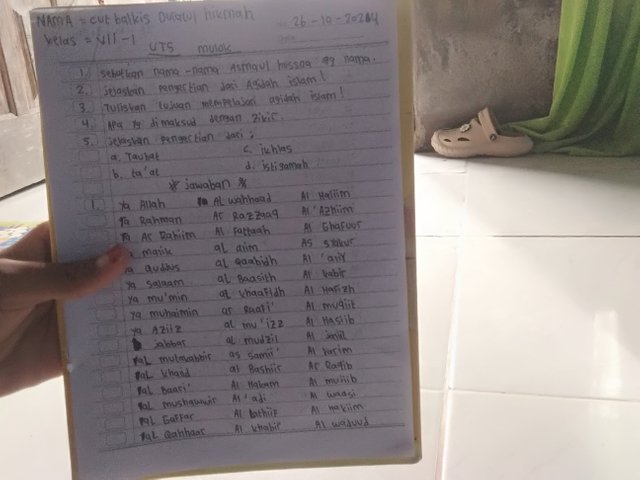 NAMA = cut balkis Duratul hikmah
26-10-2024
kelas = VII-1
UTS mulok
1. sebutkan nama-nama Asmaul husna yg nama.
2. jelaskan pengertian dari Aqidah islam!
3. Tuliskan tujuan mempelajari aqidah islam!
4. Apa yg dimaksud dengan zikir.
5. jelaskan pengertian dari :
a. Taubat c. ikhlas
b. ta'at d. istiqamah
* jawaban *
1. Ya Allah AL wahhaad Al Haliim
Ya Rahman Ar Razzaaq Al 'Azhiim
Ya Ar Rahiim Al Fattaah Al Ghafuur
malik al aiim As syakur
Ya quddus al Qaabidh Al 'aliy
Ya salaam al Baasith Al kabir
Ya mu'min al khaafidh Al Hafizh
Ya muhaimin ar Raafi' Al muqiit
Ya Aziiz al mu'izz Al Hasiib
jabbar al mudzil Al jalil
AL mutakabbir as samii' Al karim
AL khaad al Bashiir Ar Raqib
AL Baari' Al Hakam Al mujiib
AL mushawwir Al 'adl Al waasi
AL Gaffar Al lathiif Al hakiim
AL Qahhaar Al khabir Al waduud